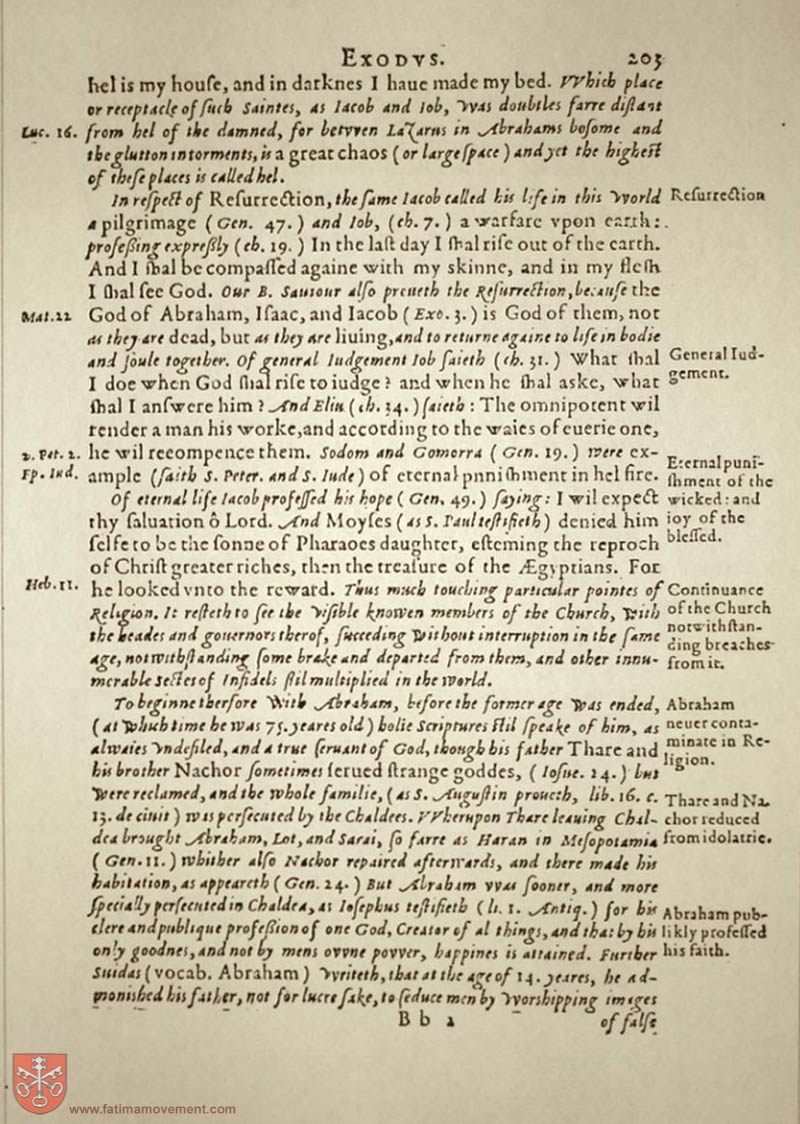 EXODVS. 203
hel is my house, and in darknes I haue made my bed. VVhich place
or receptacle of such Saintes, as Iacob and Iob, was doubtles farre distant
Luc. 16. from hel of the damned, for betvven Lazarus in Abrahams bosome and
the glutton in torments, is a great chaos (or large space) and yet the highest
of these places is called hel.
In respect of Resurrection, the same Iacob called his life in this world Resurrection
a pilgrimage (Gen. 47.) and Iob, (ch. 7.) a warfare vpon earth:
professing expresly (ch. 19.) In the last day I shal rise out of the earth.
And I shal be compassed againe with my skinne, and in my flesh
I shal see God. Our B. Sauiour also proueth the Resurrection, because the
Mat. 22 God of Abraham, Isaac, and Iacob (Exo. 3.) is God of them, not
as they are dead, but as they are liuing, and to returne againe to life in bodie
and soule together. Of general Iudgement Iob saieth (ch. 31.) What shal General Iud-
I doe when God shal rise to iudge? and when he shal aske, what gement.
shal I answere him? And Eliu (ch. 34.) saieth: The omnipotent wil
render a man his worke, and according to the waies of euerie one,
2. Pet. 2. he wil recompence them. Sodom and Gomorra (Gen. 19.) were ex- Eternal puni-
Ep. Iud. ample (saith S. Peter. and S. Iude) of eternal punishment in hel fire. shment of the
Of eternal life Iacob professed his hope (Gen. 49.) saying: I wil expect wicked: and
thy saluation ô Lord. And Moyses (as S. Paul testifieth) denied him ioy of the
selfe to be the sonne of Pharaoes daughter, esteming the reproch blessed.
of Christ greater riches, then the treasure of the Ægyptians. For
Heb. 11. he looked vnto the reward. Thus much touching particular pointes of Continuance
Religion. It resteth to see the visible knowen members of the Church, with of the Church
the heades and gouernors therof, succeding without interruption in the same notwithstan-
age, notwithstanding some brake and departed from them, and other innu- ding breaches
merable sectes of Infidels stil multiplied in the world. from it.
To beginne therfore with Abraham, before the former age was ended, Abraham
(at which time he was 75. yeares old) holie Scriptures stil speake of him, as neuer conta-
alwaies vndefiled, and a true seruant of God, though his father Thare and minate in Re-
his brother Nachor sometimes serued strange goddes, (Iosue. 24.) but ligion.
were reclamed, and the whole familie, (as S. Augustin proueth, lib. 16. c. Thare and Na-
13. de ciuit) was persecuted by the Chaldees. VVherupon Thare leauing Chal- chor reduced
dea brought Abraham, Lot, and Sarai, so farre as Haran in Mesopotamia from idolatrie.
(Gen. 11.) whither also Nachor repaired afterwards, and there made his
habitation, as appeareth (Gen. 24.) But Abraham vvas sooner, and more
specially persecuted in Chaldea, as Iosephus testifieth (li. 1. Antiq.) for his Abraham pub-
clere and publique profession of one God, Creator of al things, and that by his likly professed
only goodnes, and not by mens ovvne povver, happines is attained. Further his faith.
Suidas (vocab. Abraham) writeth, that at the age of 14. yeares, he ad-
monished his father, not for lucre sake, to seduce men by worshipping images
B b 2 of false
www.fatimamovement.com